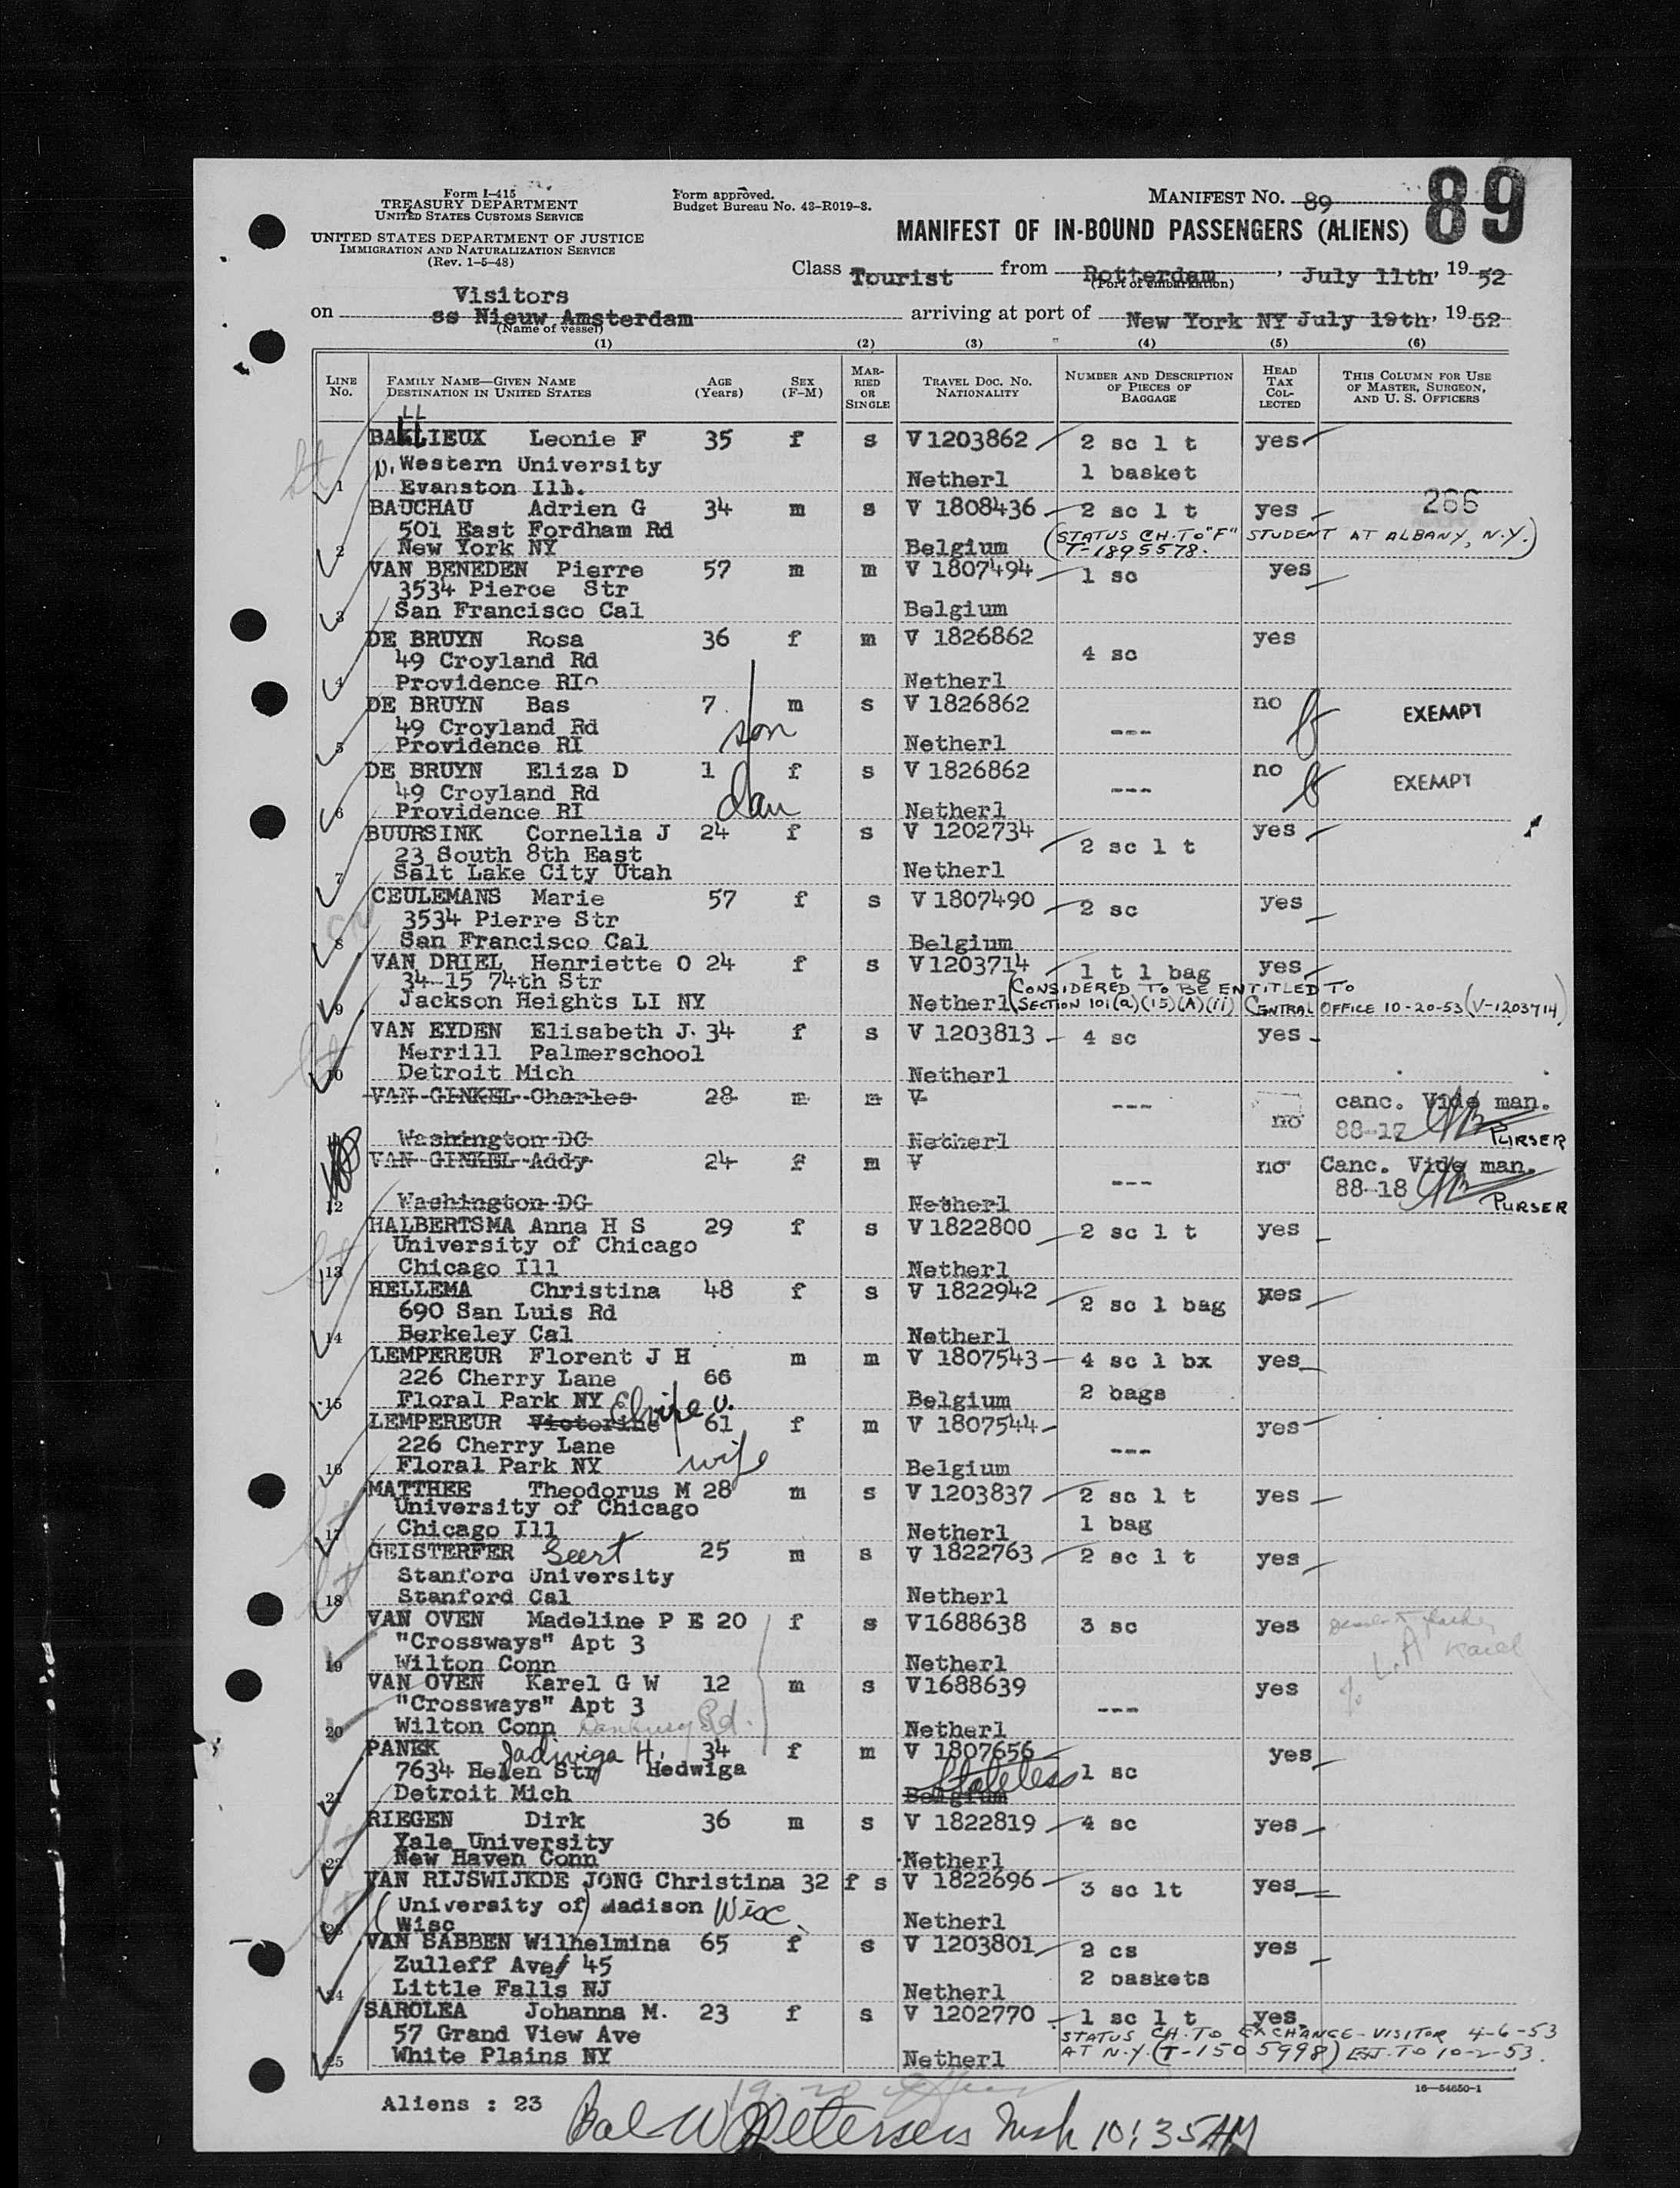 Form I-415
TREASURY DEPARTMENT
UNITED STATES CUSTOMS SERVICE
UNITED STATES DEPARTMENT OF JUSTICE
IMMIGRATION AND NATURALIZATION SERVICE
(Rev. 1-5-48)
Form approved.
Budget Bureau No. 43-R019-3.
MANIFEST NO. 89
89
MANIFEST OF IN-BOUND PASSENGERS (ALIENS)
Class Tourist from Rotterdam, July 11th, 1952
(Port of embarkation)
Visitors
on ss Nieuw Amsterdam arriving at port of New York NY July 19th, 1952
(Name of vessel)
(1) (2) (3) (4) (5) (6)
LINE No. FAMILY NAME—GIVEN NAME DESTINATION IN UNITED STATES AGE (Years) SEX (F-M) MARRIED OR SINGLE TRAVEL DOC. NO. NATIONALITY NUMBER AND DESCRIPTION OF PIECES OF BAGGAGE HEAD TAX COLLECTED THIS COLUMN FOR USE OF MASTER, SURGEON, AND U. S. OFFICERS
LL
BALLIEUX Leonie F 35 f s V 1203862 2 sc 1 t yes
N. Western University 1 basket
1 Evanston Ill. Netherl
BAUCHAU Adrien G 34 m s V 1808436 2 sc 1 t yes 266
501 East Fordham Rd (STATUS CH. TO "F" STUDENT AT ALBANY, N.Y.)
2 New York NY Belgium T-1895578.
VAN BENEDEN Pierre 57 m m V 1807494 1 sc yes
3534 Pierce Str
3 San Francisco Cal Belgium
DE BRUYN Rosa 36 f m V 1826862 yes
49 Croyland Rd 4 sc
4 Providence RI Netherl
DE BRUYN Bas 7 m s V 1826862 no EXEMPT
49 Croyland Rd son ---
5 Providence RI Netherl
DE BRUYN Eliza D 1 f s V 1826862 no EXEMPT
49 Croyland Rd dau ---
6 Providence RI Netherl
BUURSINK Cornelia J 24 f s V 1202734 yes
23 South 8th East 2 sc 1 t
7 Salt Lake City Utah Netherl
CEULEMANS Marie 57 f s V 1807490 2 sc yes
3534 Pierre Str
8 San Francisco Cal Belgium
VAN DRIEL Henriette O 24 f s V 1203714 1 t 1 bag yes
34-15 74th Str (CONSIDERED TO BE ENTITLED TO
9 Jackson Heights LI NY Netherl SECTION 101(a)(15)(A)(ii) CENTRAL OFFICE 10-20-53 (V-1203714)
VAN EYDEN Elisabeth J. 34 f s V 1203813 4 sc yes
Merrill Palmerschool
10 Detroit Mich Netherl
VAN GINKEL Charles 28 m m V --- no canc. Vide man.
88-17 PURSER
Washington DC Netherl
VAN GINKEL Addy 24 f m V --- no Canc. Vide man.
88-18 PURSER
12 Washington DC Netherl
HALBERTSMA Anna H S 29 f s V 1822800 2 sc 1 t yes
University of Chicago
13 Chicago Ill Netherl
HELLEMA Christina 48 f s V 1822942 2 sc 1 bag yes
690 San Luis Rd
14 Berkeley Cal Netherl
LEMPEREUR Florent J H m m V 1807543 4 sc 1 bx yes
226 Cherry Lane 66 2 bags
15 Floral Park NY Belgium
Elvire V.
LEMPEREUR Victorine 61 f m V 1807544 yes
226 Cherry Lane ---
16 Floral Park NY wife Belgium
MATTHEE Theodorus M 28 m s V 1203837 2 sc 1 t yes
University of Chicago 1 bag
17 Chicago Ill Netherl
GEISTERFER Geert 25 m s V 1822763 2 sc 1 t yes
Stanford University
18 Stanford Cal Netherl
VAN OVEN Madeline P E 20 f s V 1688638 3 sc yes
"Crossways" Apt 3 Karel
19 Wilton Conn Netherl
VAN OVEN Karel G W 12 m s V 1688639 yes
"Crossways" Apt 3 ---
20 Wilton Conn Danbury Rd. Netherl
PANEK Jadwiga H. 34 f m V 1807656 yes
7634 Helen Str Hedwiga Stateless 1 sc
21 Detroit Mich Belgium
RIEGEN Dirk 36 m s V 1822819 4 sc yes
Yale University
22 New Haven Conn Netherl
VAN RIJSWIJKDE JONG Christina 32 f s V 1822696 3 sc 1t yes
(University of) Madison Wisc.
23 Wisc Netherl
VAN SABBEN Wilhelmina 65 f s V 1203801 2 cs yes
Zulleff Ave 45 2 baskets
24 Little Falls NJ Netherl
SAROLEA Johanna M. 23 f s V 1202770 1 sc 1 t yes
57 Grand View Ave STATUS CH. TO EXCHANGE-VISITOR 4-6-53
25 White Plains NY Netherl AT N.Y. (T-1505998) EXT. TO 10-2-53.
16—54650-1
Aliens : 23
Petersen 10:35 AM